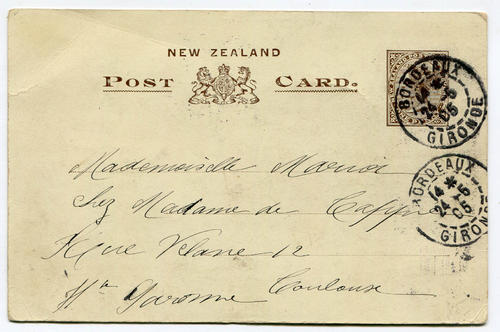 NEW ZEALAND
POST CARD.
BORDEAUX
14 *
24 -5
05
GIRONDE
BORDEAUX
14 *
24 -5
05
GIRONDE
Mademoiselle
Chez Madame de
Rue Velane 12
Toulouse
Hte Garonne